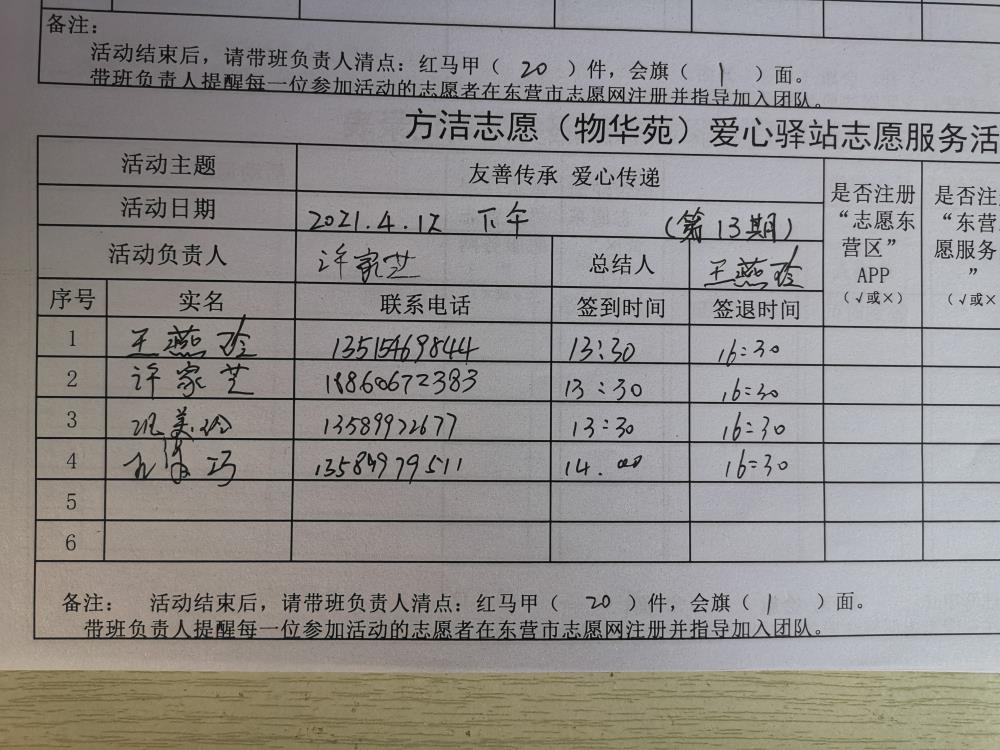 备注：
活动结束后，请带班负责人清点：红马甲（ 20 ）件，会旗（ 1 ）面。
带班负责人提醒每一位参加活动的志愿者在东营市志愿网注册并指导加入团队。
方洁志愿（物华苑）爱心驿站志愿服务活
活动主题 友善传承 爱心传递
是否注册“志愿东营区”APP（√或×）
是否注“东营愿服务”（√或×
活动日期 2021.4.12 下午 （第13期）
活动负责人 许家芝 总结人 王燕玲
序号 实名 联系电话 签到时间 签退时间
1 王燕玲 13515469844 13:30 16:30
2 许家芝 18860672383 13:30 16:30
3 巩美玲 13589972677 13:30 16:30
4 巧 13589979511 14.00 16:30
5
6
备注： 活动结束后，请带班负责人清点：红马甲（ 20 ）件，会旗（ 1 ）面。
带班负责人提醒每一位参加活动的志愿者在东营市志愿网注册并指导加入团队。